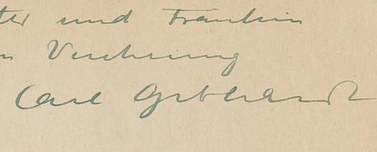 und Fräulein
Verehrung
Carl Gebhardt